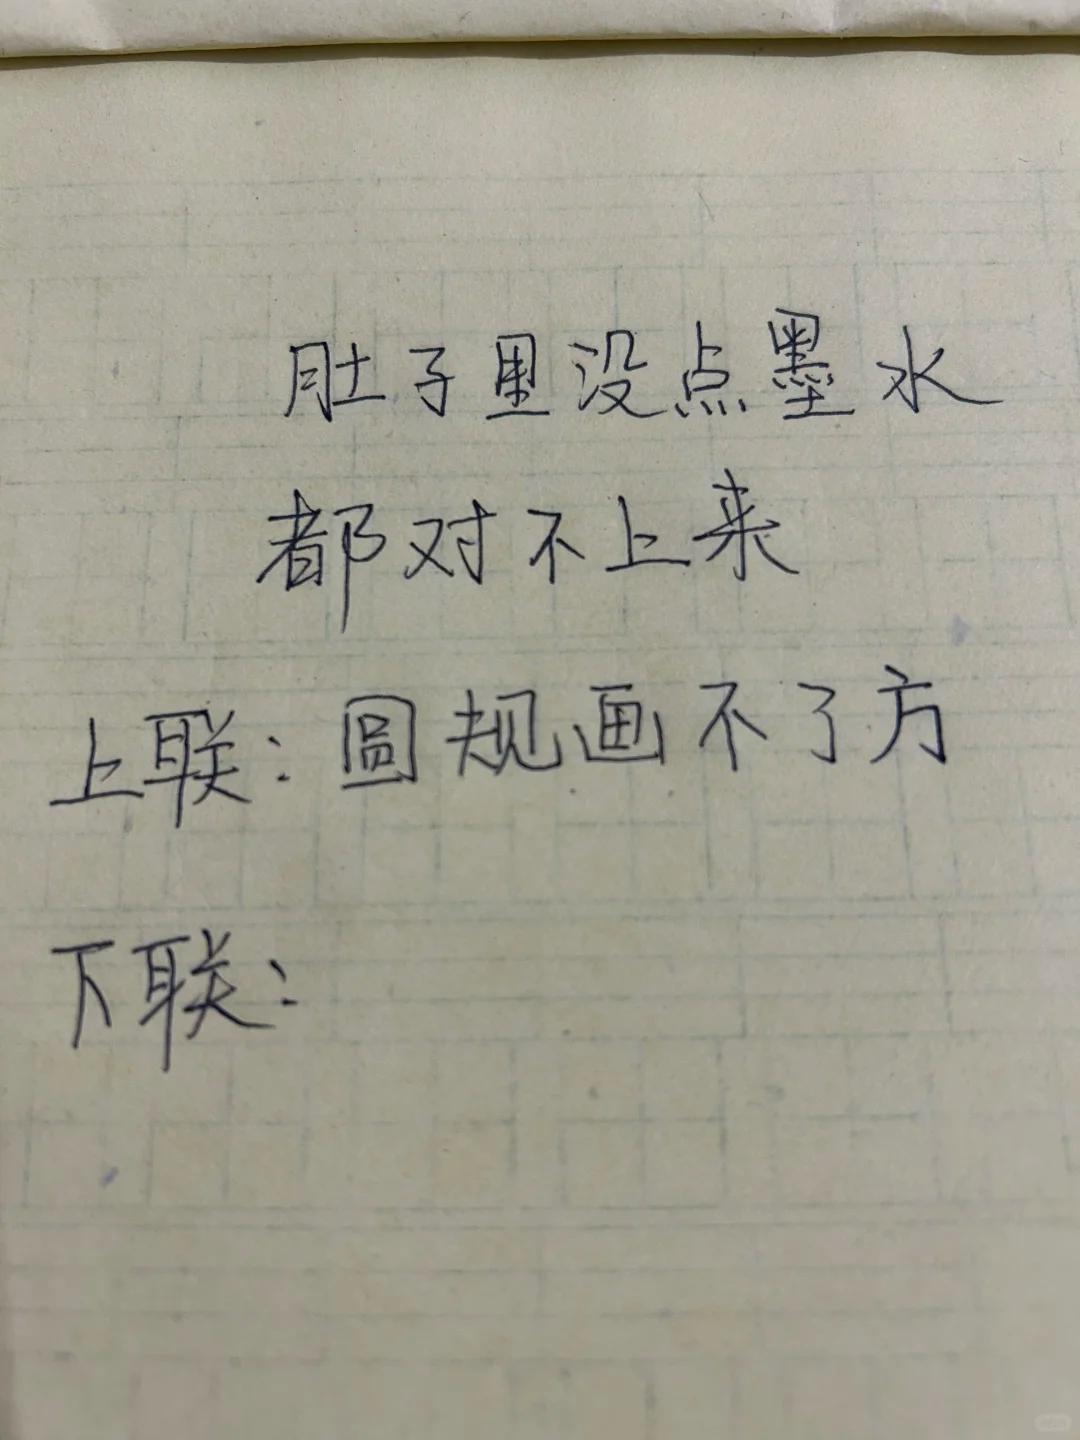 肚子里没点墨水
都对不上来
上联：圆规画不了方
下联：